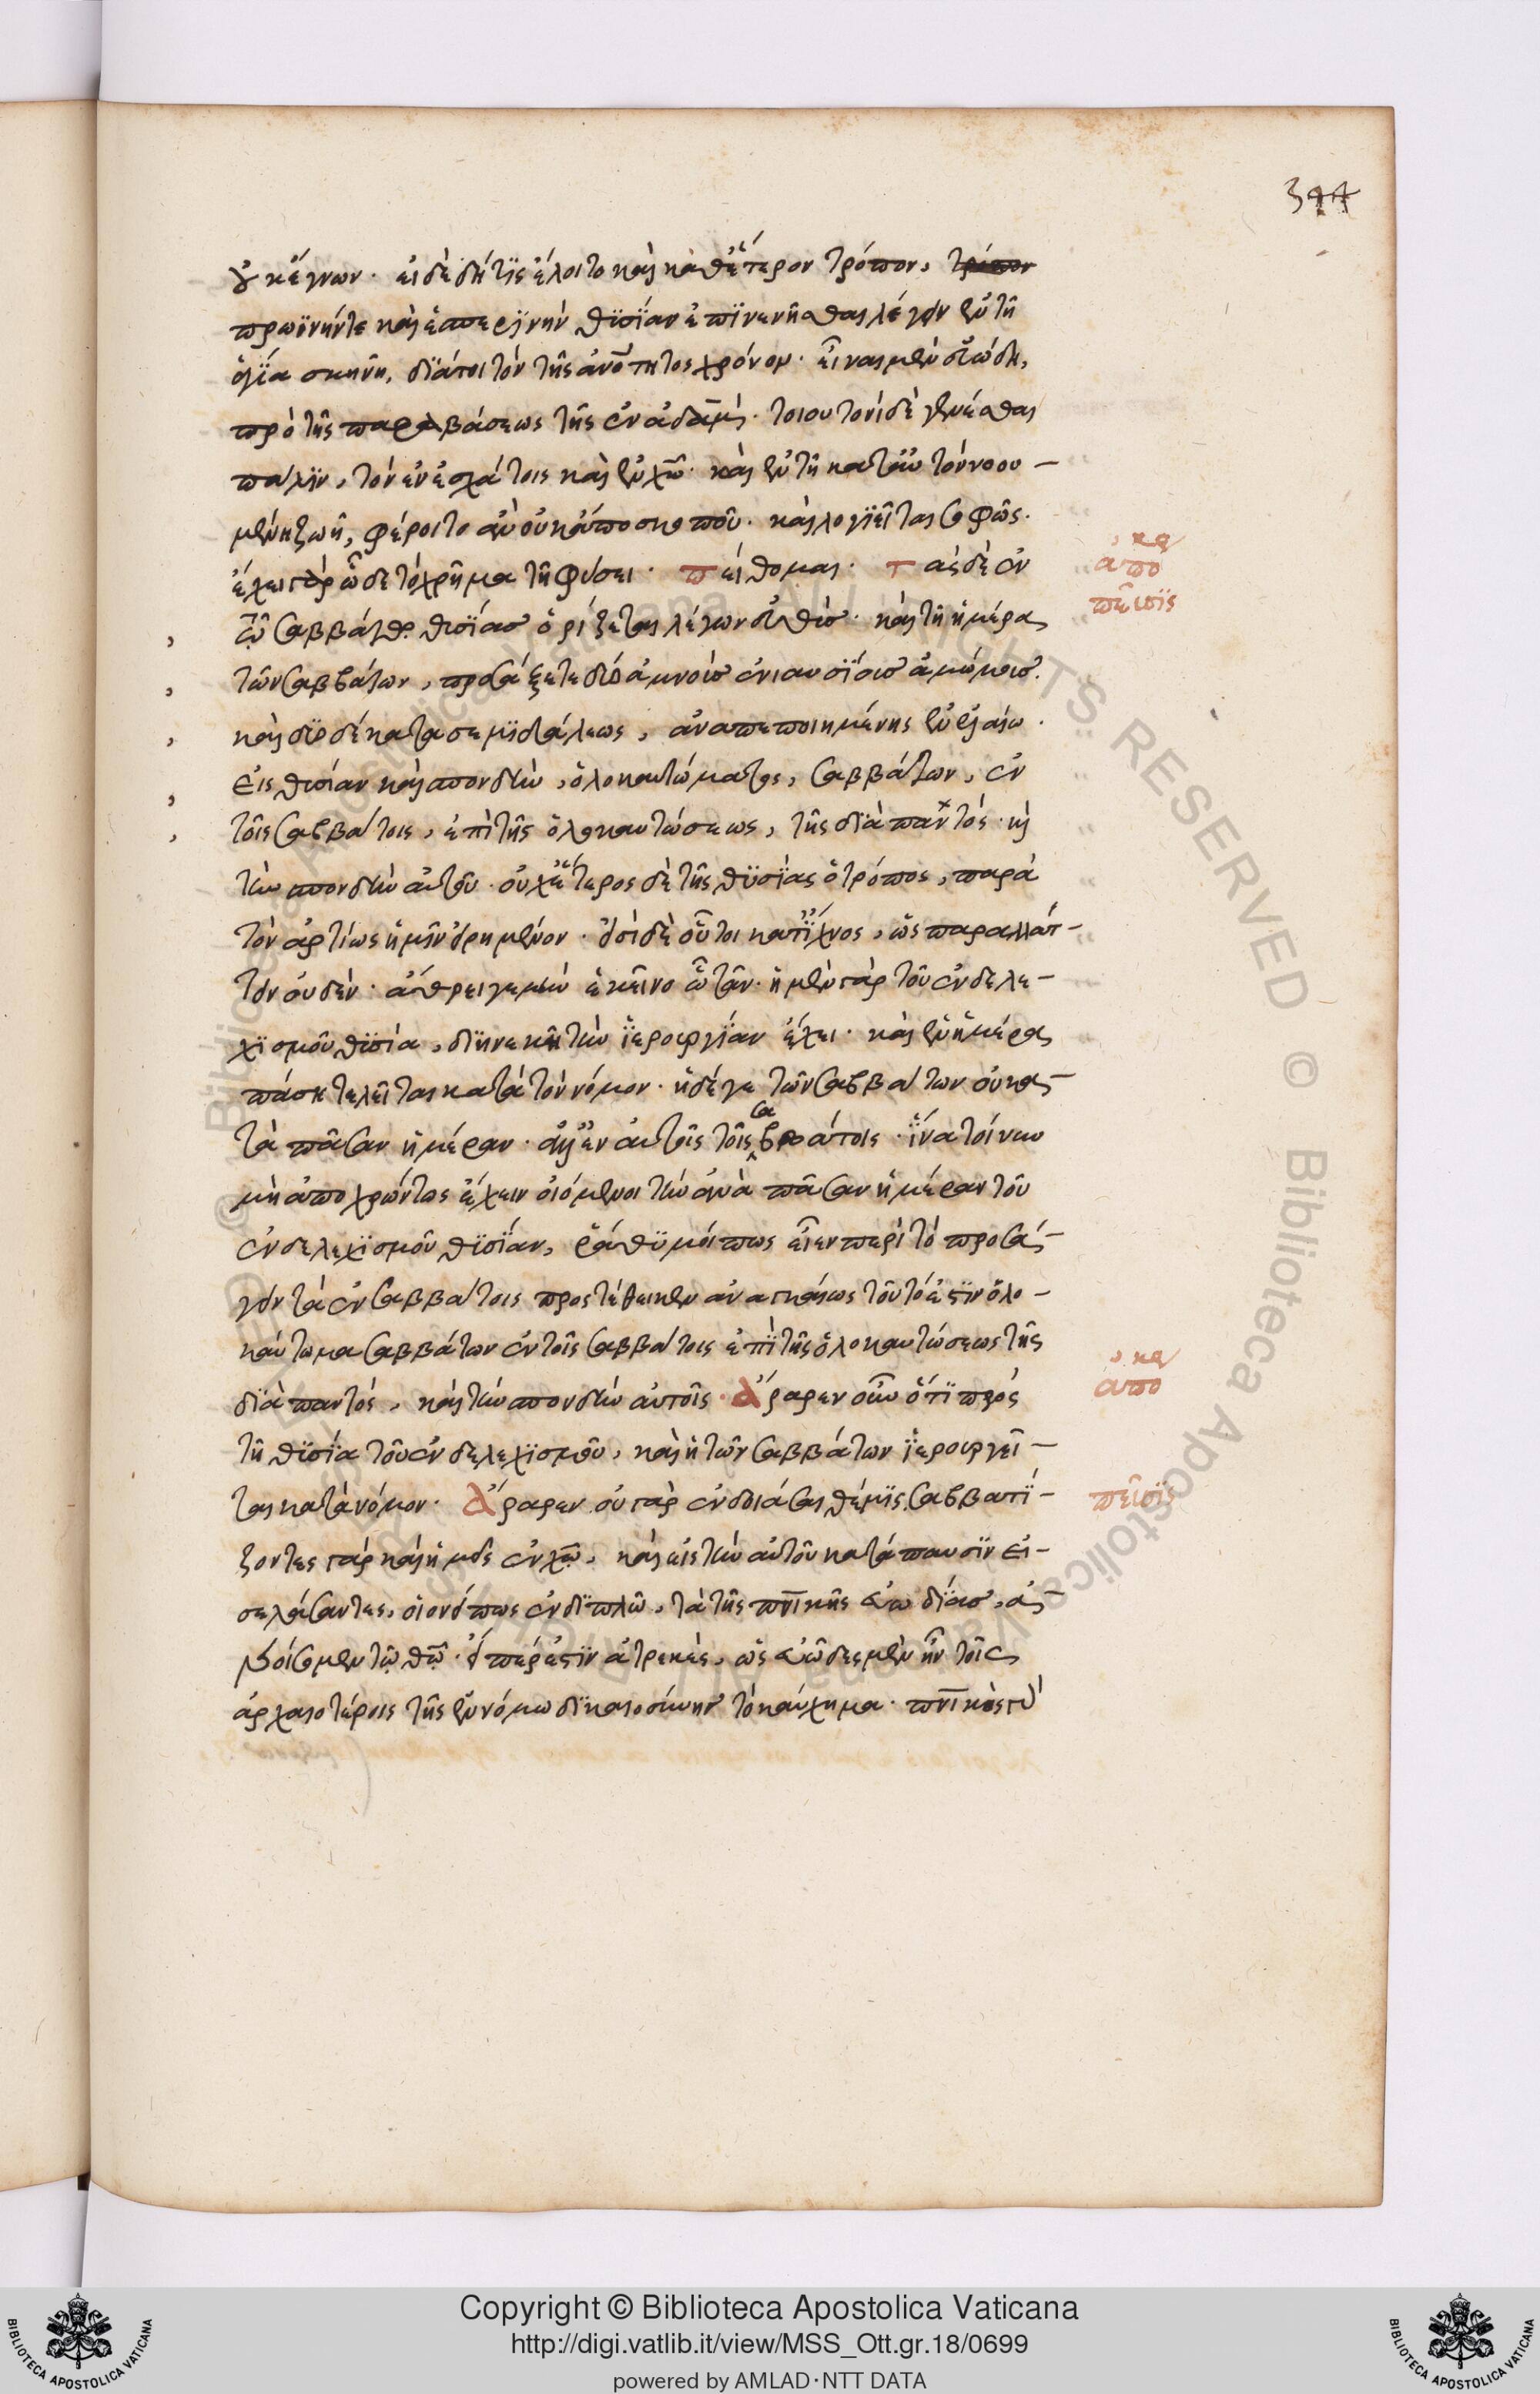 344
οὐκ ἄγνων. εἰ δὲ δή τις ἕλοιτο καὶ καθ' ἕτερον τρόπον, τρόπον
πρωϊνήν τε καὶ ἑσπερινὴν θυσίαν ἐπινενῆσθαι λέγειν ἐν τῆ
ἁγία σκηνῆ, διάτοι τὸν τῆς ἁγιότητος χρόνον. εἶναι μὲν εὐώδη,
πρὸ τῆς παραβάσεως τῆς ἐν ἀδάμ. τοιουτονὶ δὲ γενέσθαι
πάλιν, τὸν ἐν ἐσχάτοις καὶ ἐν χῶ. καὶ ἐν τῆ κατ' αὐτὸν νοου-
μένη ζωῆ, φέροιτο ἂν οὐκ ἄπο σκοποῦ. καὶ λογιεῖται σαφῶς.
ἔχει γὰρ ὧδε τὸ χρῆμα τῆ φύσει. πείθομαι. τὰς δὲ ἐν
τῶ σαββάτω θυσίας ὁρίζεται λέγων οὕτως. καὶ τῆ ἡμέρα
τῶν σαββάτων, προσάξετε δύο ἀμνοὺς ἐνιαυσίους ἀμώμους.
καὶ δύο δέκατα σεμιδάλεως, ἀναπεποιημένης ἐν ἐλαίω.
εἰς θυσίαν καὶ σπονδὴν, ὁλοκαυτώματος, σαββάτων, ἐν
τοῖς σαββάτοις, ἐπὶ τῆς ὁλοκαυτώσεως, τῆς διὰ παντός. καὶ
τὴν σπονδὴν αὐτοῦ. οὐχ ἕτερος δὲ τῆς θυσίας ὁ τρόπος, παρὰ
τὸν ἀρτίως ἡμῖν εἰρημένον. εἶσι δὲ οὗτοι κατ' ἴχνος, ὡς παραλλάτ-
τειν οὐδέν. ἄθρει γε μὴν ἐκεῖνο ὦ τᾶν. ἡ μὲν γὰρ τοῦ ἐνδελε-
χισμοῦ θυσία, διηνεκῆ τὴν ἱερουργίαν ἔχει. καὶ ἐν ἡμέρα
πάση τελεῖται κατὰ τὸν νόμον. ἡ δέ γε τῶν σαββάτων οὐ κα-
τὰ πᾶσαν ἡμέραν. ἀλλ' ἐν αὐτοῖς τοῖς σαββάτοις. ἵνα τοίνυν
μὴ ἀποχρώντως ἔχειν οἰόμενοι τὴν ἀνὰ πᾶσαν ἡμέραν τοῦ
ἐνδελεχισμοῦ θυσίαν, ῥάθυμοί πως εἶεν περὶ τὸ προσά-
γειν τὰ ἐν σαββάτοις προστέθεικεν ἀναγκαίως τοῦτό ἐστιν ὁλο-
καύτωμα σαββάτων ἐν τοῖς σαββάτοις ἐπὶ τῆς ὁλοκαυτώσεως τῆς
διὰ παντός, καὶ τὴν σπονδὴν αὐτοῖς. ἄραρεν οὖν ὅτι πρὸς
τῆ θυσία τοῦ ἐνδελεχισμοῦ, καὶ ἡ τῶν σαββάτων ἱερουργεῖ-
ται κατὰ νόμον. ἄραρεν οὐ γὰρ ἐνδοιάσαι θέμις. σαββατί-
ζοντες γὰρ καὶ ἡμεῖς ἐν χῶ, καὶ εἰς τὴν αὐτοῦ κατάπαυσιν εἰ-
σελάσαντες, οἱονεί πως ἐν διπλῶ, τὰ τῆς πνικῆς εὐωδίας, ἀ-
νοίσομεν τῶ θῶ. ὅπερ ἐστιν ἀτρεκὲς, ὡς εὐῶδες μὲν ἦν τοῖς
ἀρχαιοτέροις τῆς ἐν νόμω δικαιοσύνης τὸ καύχημα. πνικὸς γὰρ
κα
ἀπο
πεῦσις
κα
ἀπο
πεῦσις
Copyright © Biblioteca Apostolica Vaticana
http://digi.vatlib.it/view/MSS_Ott.gr.18/0699
powered by AMLAD·NTT DATA